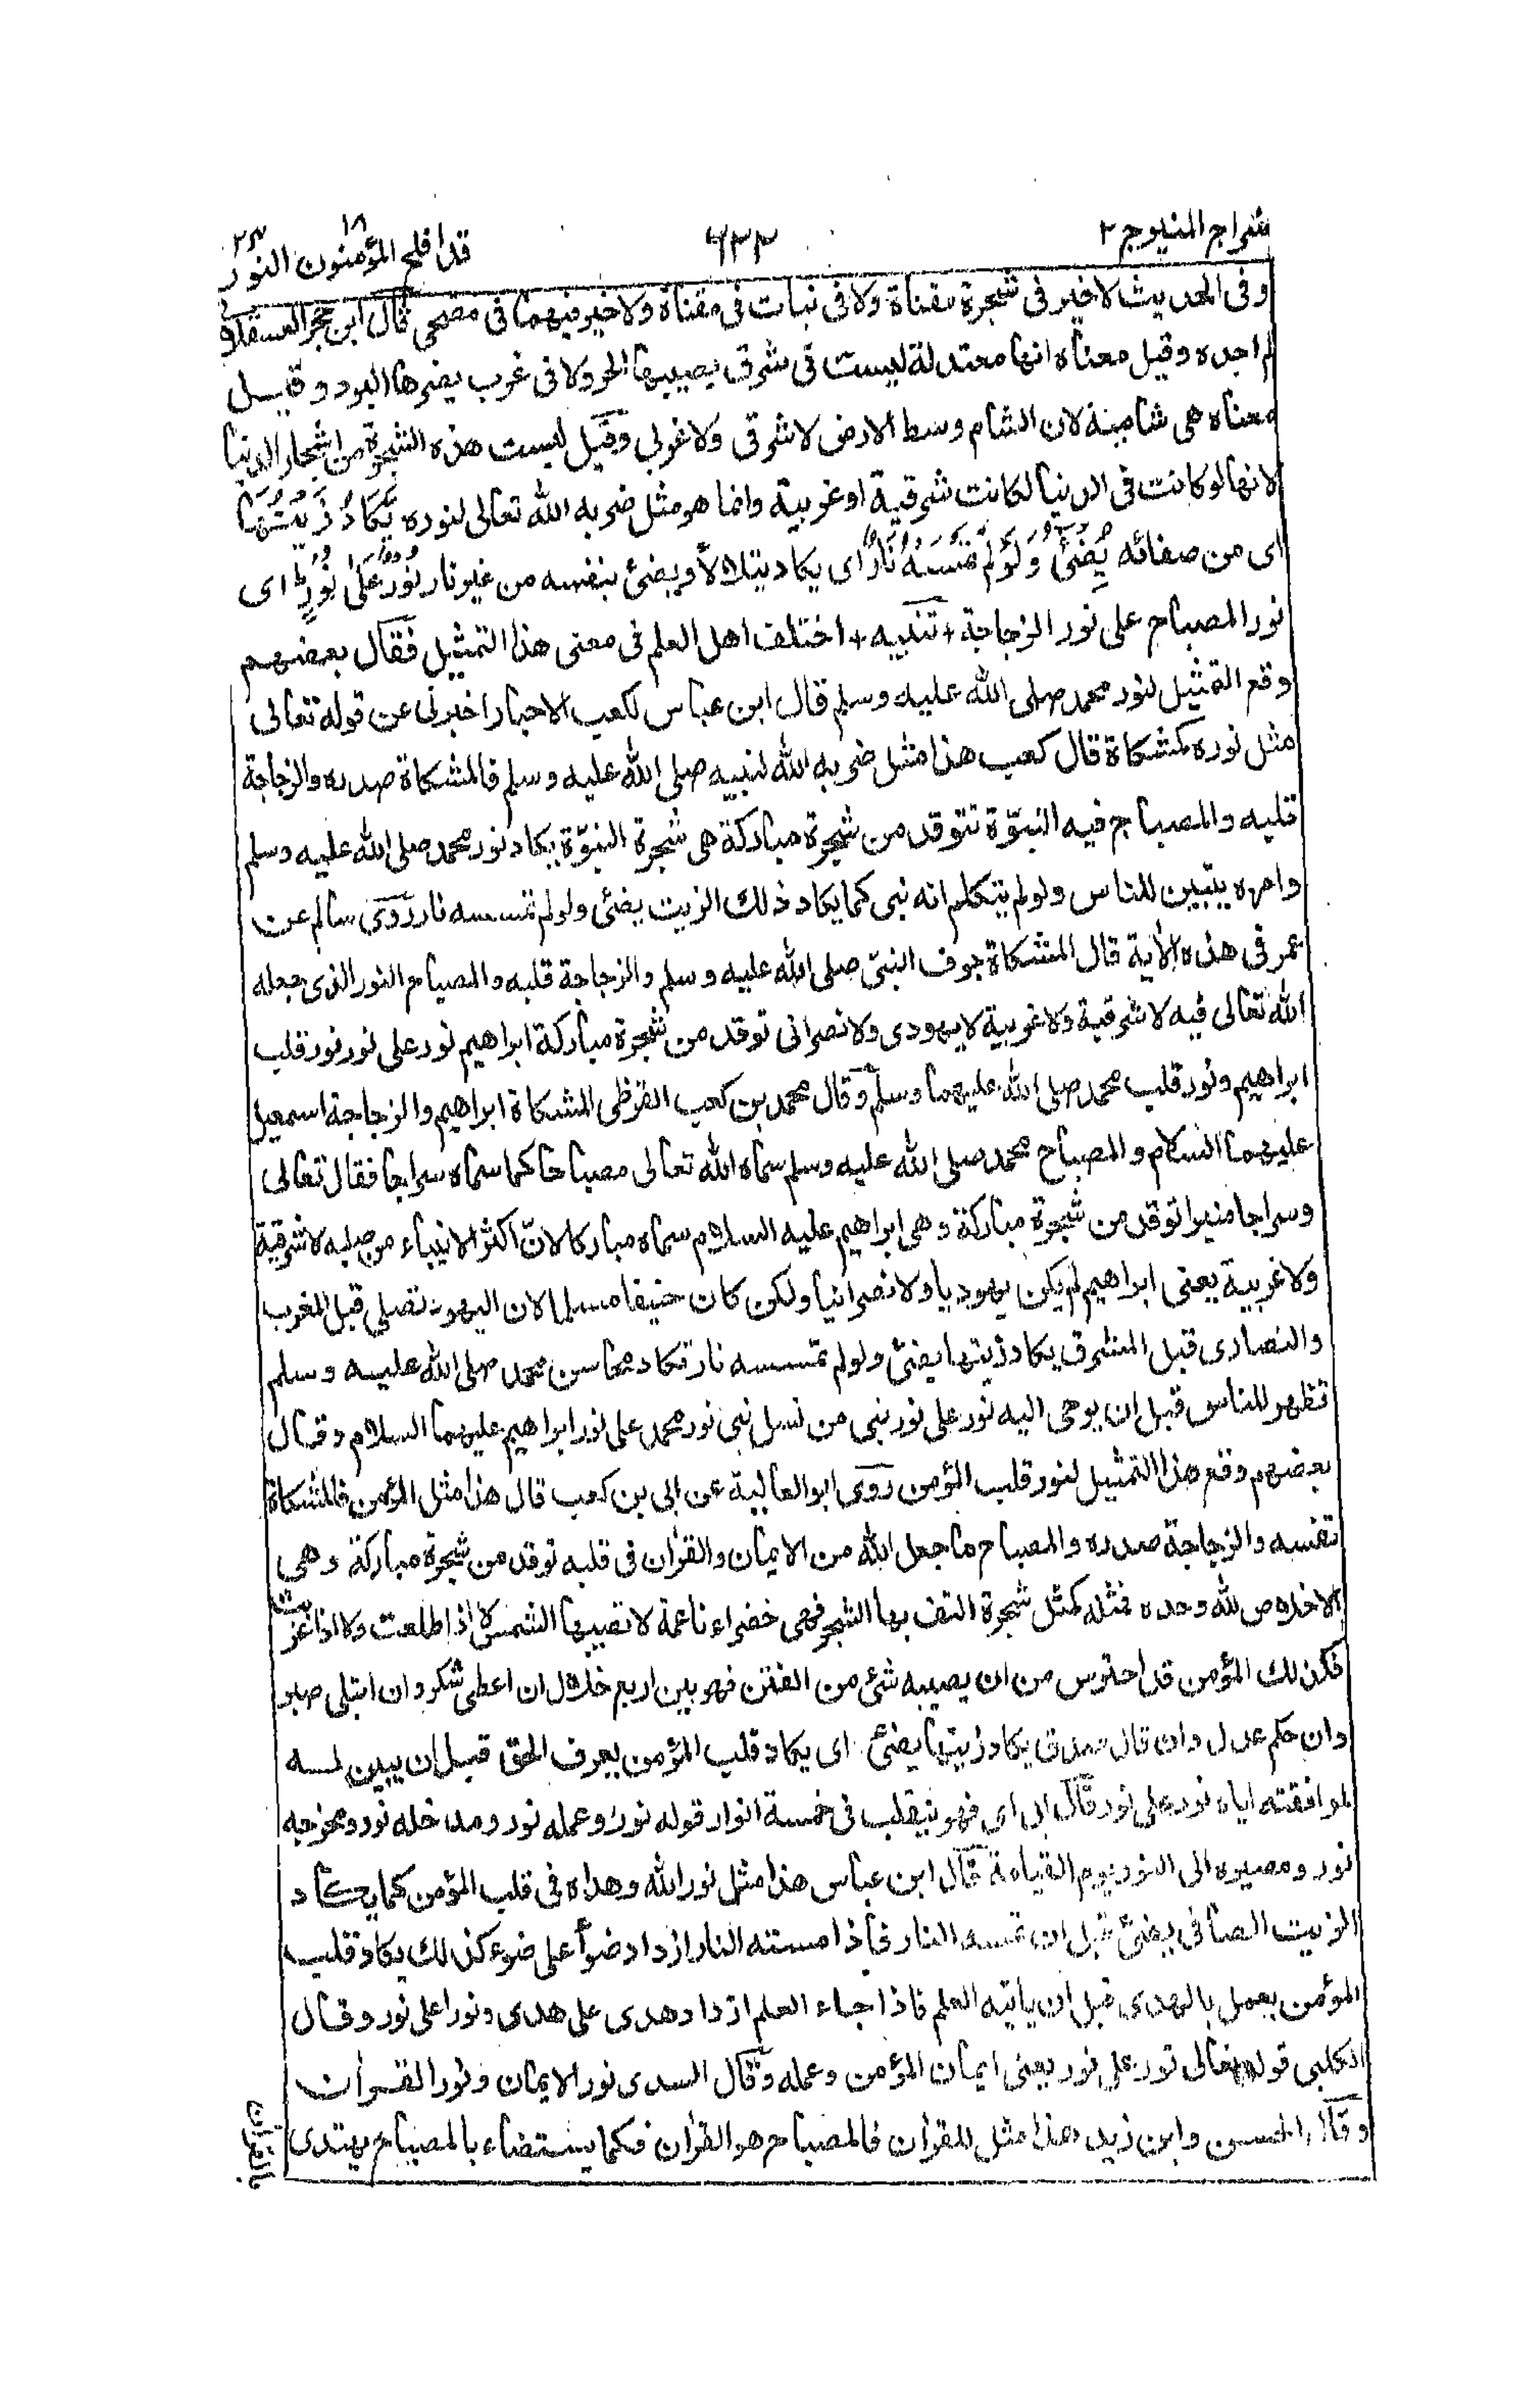 سراج المنير ج ٢
٦٢٢
قد افلح المؤمنون ١٨ النور ٢٤
وفى الحديث لا خير فى شجرة مقناة ولا فى نبات فى مقناة ولا خير فيهما فى مضحى قال ابن حجر العسقلانى
لم اجده وقيل معناه انها معتدلة ليست فى شرق يصيبها الحر ولا فى غرب يضرها البرد وقيل
معناه هى شامية لان الشام وسط الارض لا شرقى ولا غربى وقيل ليست هذه الشجرة من اشجار الدنيا
لانها لو كانت فى الدنيا لكانت شرقية او غربية وانما هو مثل ضربه الله تعالى لنوره يَكَادُ زَيْتُهَا
اى من صفائه يُضِىْٓءُ وَلَوْ لَمْ تَمْسَسْهُ نَارٌ اى يكاد يتلالأ ويضئ بنفسه من غير نار نُوْرٌ عَلٰى نُوْرٍ اى
نور المصباح على نور الزجاجة + تنبيه + اختلف اهل العلم فى معنى هذا التمثيل فقال بعضهم
وقع التمثيل لنور محمد صلى الله عليه وسلم قال ابن عباس لكعب الاحبار اخبرنى عن قوله تعالى
مثل نوره كمشكاة قال كعب هذا مثل ضربه الله لنبيه صلى الله عليه وسلم فالمشكاة صدره والزجاجة
قلبه والمصباح فيه النبوّة تتوقد من شجرة مباركة هى شجرة النبوّة يكاد نور محمد صلى الله عليه وسلم
وامره يتبين للناس ولو لم يتكلم انه نبى كما يكاد ذلك الزيت يضئ ولو لم تمسسه نار روى سالم عن
عمر فى هذه الأية قال المشكاة جوف النبىّ صلى الله عليه وسلم والزجاجة قلبه والمصباح النور الذى جعله
الله تعالى فيه لا شرقية ولا غربية لا يهودى ولا نصرانى توقد من شجرة مباركة ابراهيم نور على نور نور قلب
ابراهيم ونور قلب محمد صلى الله عليهما وسلم وقال محمد بن كعب القرظى المشكاة ابراهيم والزجاجة اسمعيل
عليهما السلام والمصباح محمد صلى الله عليه وسلم سماه الله تعالى مصباحا كما سماه سراجا فقال تعالى
وسراجا منيرا توقد من شجرة مباركة وهى ابراهيم عليه السلام سماه مباركا لانّ اكثر الانبياء من صلبه لا شرقية
ولا غربية يعنى ابراهيم لم يكن يهوديا ولا نصرانيا ولكن كان حنيفا مسلما لان اليهود تصلى قبل المغرب
والنصارى قبل المشرق يكاد زيتها يضئ ولو لم تمسسه نار تكاد محاسن محمد صلى الله عليه وسلم
تظهر للناس قبل ان يوحى اليه نور على نور نبى من نسل نبى نور محمد على نور ابراهيم عليهما السلام وقال
بعضهم وقع هذا التمثيل لنور قلب المؤمن روى ابو العالية عن ابى بن كعب قال هذا مثل المؤمن فالمشكاة
نفسه والزجاجة صدره والمصباح ما جعل الله من الايمان والقرٰان فى قلبه توقد من شجرة مباركة وهى
الاخلاص لله وحده فمثله كمثل شجرة التف بها الشجر فهى خضراء ناعمة لا تصيبها الشمس لا اذا طلعت ولا اذا غربت
فكذلك المؤمن قد احترس من ان يصيبه شئ من الفتن فهو بين اربع خلال ان اعطى شكر وان ابتلى صبر
وان حكم عدل وان قال صدق يكاد زيتها يضئ اى يكاد قلب المؤمن يعرف الحق قبل ان يبين له
لموافقته اياه نور على نور قال ابى اى فهو يتقلب فى خمسة انوار قوله نور وعمله نور ومدخله نور ومخرجه
نور ومصيره الى النور يوم القيامة قال ابن عباس هذا مثل نور الله وهداه فى قلب المؤمن كما يكاد
الزيت الصافى يضئ قبل ان تمسه النار فاذا مسته النار ازداد ضوأ على ضوء كذلك يكاد قلب
المؤمن يعمل بالهدى قبل ان ياتيه العلم فاذا جاء العلم ازداد هدى على هدى ونورا على نور وقال
الكلبى قوله تعالى نور على نور يعنى ايمان المؤمن وعمله وقال السدى نور الايمان ونور القرٰان
وقال الحسن وابن زيد هذا مثل للقرٰان فالمصباح هو القرٰان فكما يستضاء بالمصباح يهتدى
بالقرٰان